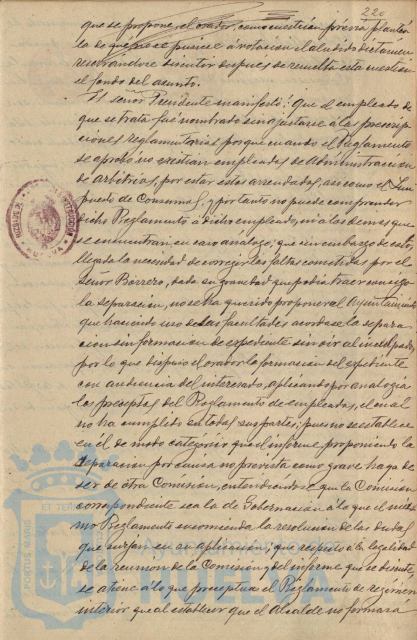 220
que se propone el orador, como cuestión previa plantea
la de que no se pusiese á votación el aludido dictamen
reservandose discutir despues de resuelta esta cuestion
el fondo del asunto.
El señor Presidente manifestó: Que el empleado de
que se trata fué nombrado sin ajustarse á las prescrip-
ciones reglamentarias porque cuando el Reglamento
se aprobó no existian empleados de Administracion
de arbitrios, por estar estos arrendados, asi como el Im-
puesto de Consumos, y por tanto no puede comprender
dicho Reglamento á dicho empleado, ni á los demas que
se encuentran en caso analogo; que sin embargo de esto
llegada la necesidad de corregir las faltas cometidas por el
Señor Borrero, dada su gravedad que podia traer consigo
la separacion, no se ha querido proponer al Ayuntamiento
que haciendo uso de las facultades acordase la separa-
cion sin formacion de expediente sin oir al inculpado,
por lo que dispuso el orador la formacion del expediente
con audiencia del interesado, aplicando por analogia
los preceptos del Reglamento de empleados, el cual no
ha cumplido en todas sus partes; pues no se establece
en él de modo categórico que el informe proponiendo la
separacion por causa no prevista como grave haya de
ser de otra Comision, entendiendose que la Comision
correspondiente sea la de Gobernacion á lo que el mis-
mo Reglamento encomienda la resolucion de las dudas
que surjan en su aplicacion; que respecto á la legalidad
de la reunion de la Comision y del informe que se discute,
se atiene á lo que preceptua el Reglamento de regimen
interior que al establecer que el Alcalde no formara
PORTUS MARIS
ET TERRÆ
Ayuntamiento de
HUELVA